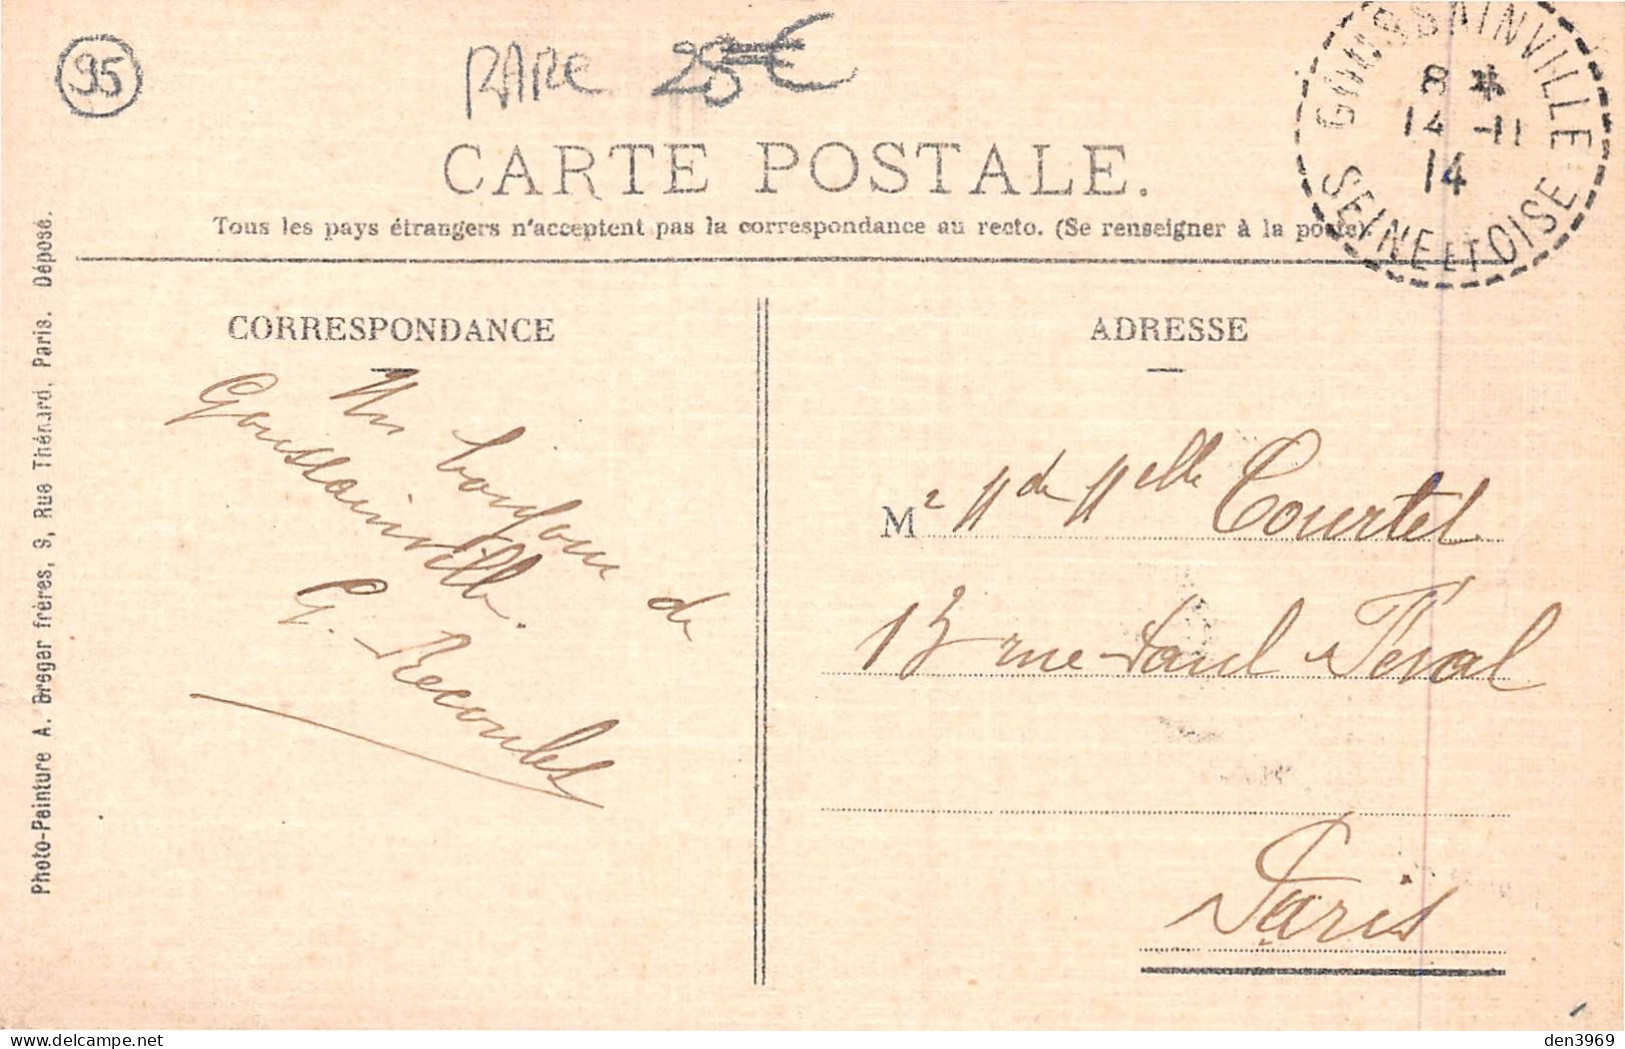 95
RARE 25€
GOUSSAINVILLE
8 *
14 -11
14
SEINE ET OISE
CARTE POSTALE.
Tous les pays étrangers n'acceptent pas la correspondance au recto. (Se renseigner à la poste).
Photo-Peinture A. Breger frères, 9, Rue Thénard, Paris. Déposé.
CORRESPONDANCE
Un bonjour de
Goussainville.
G. Recoules
ADRESSE
M r Mde Melle Courtel
13 rue Paul Feval
Paris
den3969